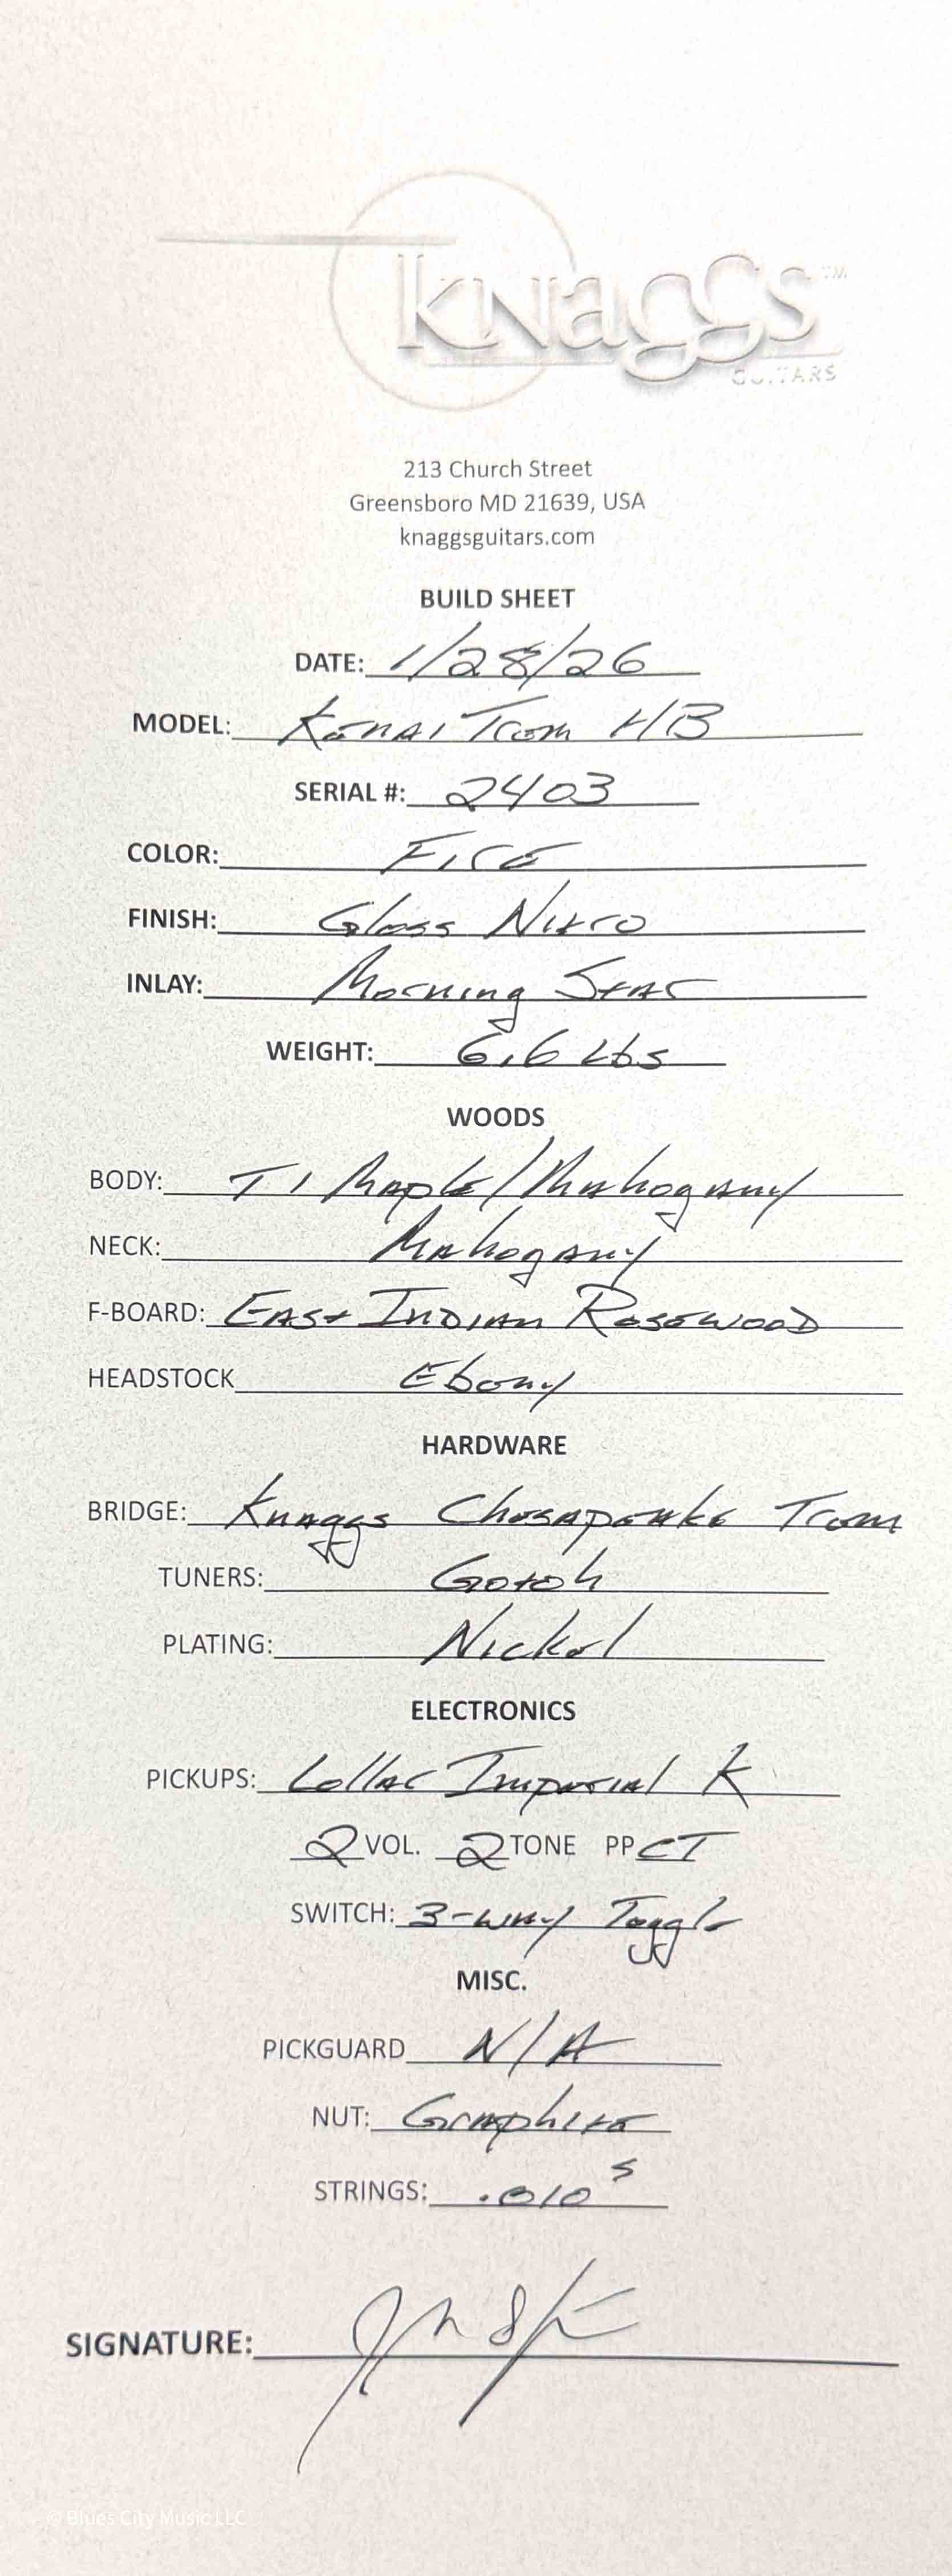 Knaggs™
GUITARS
213 Church Street
Greensboro MD 21639, USA
knaggsguitars.com
BUILD SHEET
DATE: 1/28/26
MODEL: Kenai Trem HB
SERIAL #: 2403
COLOR: Fire
FINISH: Gloss Nitro
INLAY: Morning Star
WEIGHT: 6.6 Lbs
WOODS
BODY: T1 Maple/Mahogany
NECK: Mahogany
F-BOARD: East Indian Rosewood
HEADSTOCK Ebony
HARDWARE
BRIDGE: Knaggs Chesapeake Trem
TUNERS: Gotoh
PLATING: Nickel
ELECTRONICS
PICKUPS: Lollar Imperial K
2 VOL. 2 TONE PP CT
SWITCH: 3-way Toggle
MISC.
PICKGUARD N/A
NUT: Graphite
STRINGS: .010s
SIGNATURE:
© Blues City Music LLC